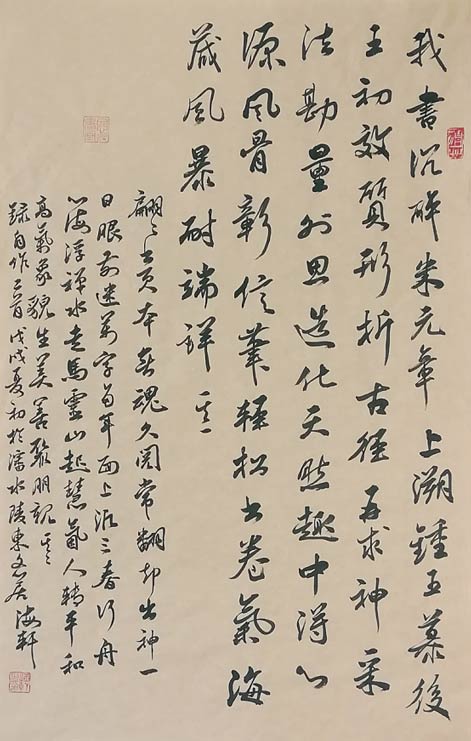 我書沉醉米元章上溯鍾王慕後
王初效質形析古徑再求神采
法勘量外思造化天然趣中得心
源風骨彰信筆輕松書卷氣海
葳風暴耐端詳 其一
翩翩書頁本無魂久閱常翻却出神一
日眼前迷萬字百年面上泛三春行舟
心海浮禪水走馬靈山起慧氣人轉平和
高氣象貌生美善聚朋親 其二
録自作二首戊戌夏初於濡水陵東文居 海軒